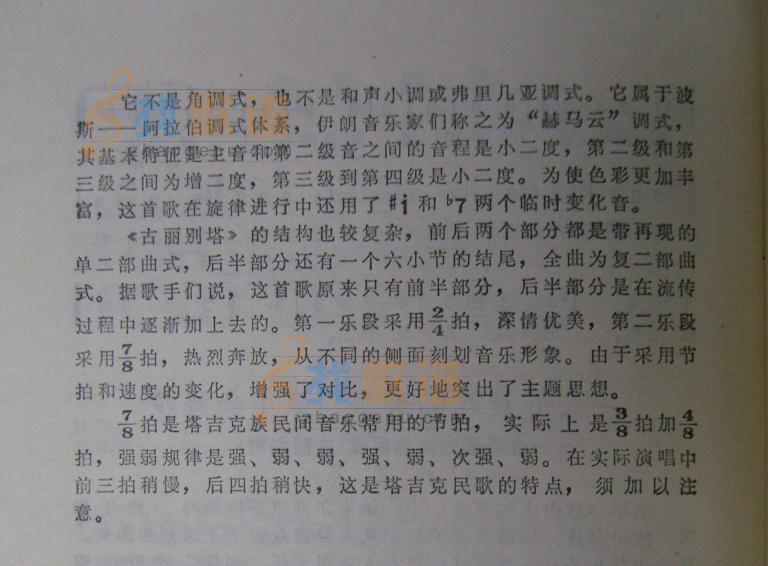 它不是角调式，也不是和声小调或弗里几亚调式。它属于波
斯——阿拉伯调式体系，伊朗音乐家们称之为“赫马云”调式，
其基本特征是主音和第二级音之间的音程是小二度，第二级和第
三级之间为增二度，第三级到第四级是小二度。为使色彩更加丰
富，这首歌在旋律进行中还用了♯i和♭7两个临时变化音。
《古丽别塔》的结构也较复杂，前后两个部分都是带再现的
单二部曲式，后半部分还有一个六小节的结尾，全曲为复二部曲
式。据歌手们说，这首歌原来只有前半部分，后半部分是在流传
过程中逐渐加上去的。第一乐段采用2/4拍，深情优美，第二乐段
采用7/8拍，热烈奔放，从不同的侧面刻划音乐形象。由于采用节
拍和速度的变化，增强了对比，更好地突出了主题思想。
7/8拍是塔吉克族民间音乐常用的节拍，实际上是3/8拍加4/8
拍，强弱规律是强、弱、弱、强、弱、次强、弱。在实际演唱中
前三拍稍慢，后四拍稍快，这是塔吉克民歌的特点，须加以注
意。